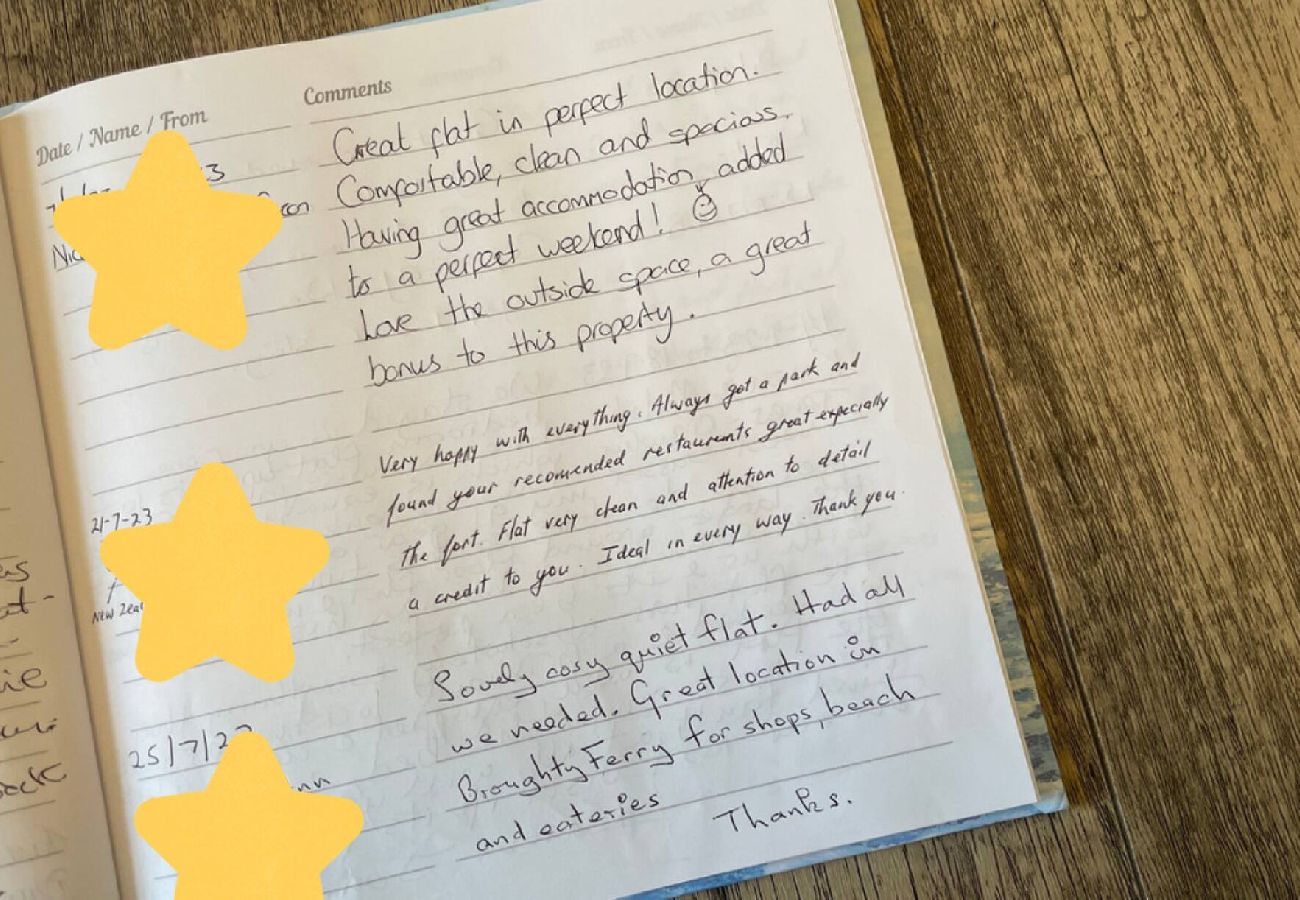 Date / Name / From
Comments
Great flat in perfect location.
Comfortable, clean and spacious.
Having great accommodation, added
to a perfect weekend!
Love the outside space, a great
bonus to this property.
21-7-23
Very happy with everything. Always got a park and
found your recomended restaurents great especially
The fort. Flat very clean and attention to detail
a credit to you. Ideal in every way. Thank you.
25/7/2
Lovely cosy quiet flat. Had all
we needed. Great location in
Broughty Ferry for shops, beach
and eateries Thanks.